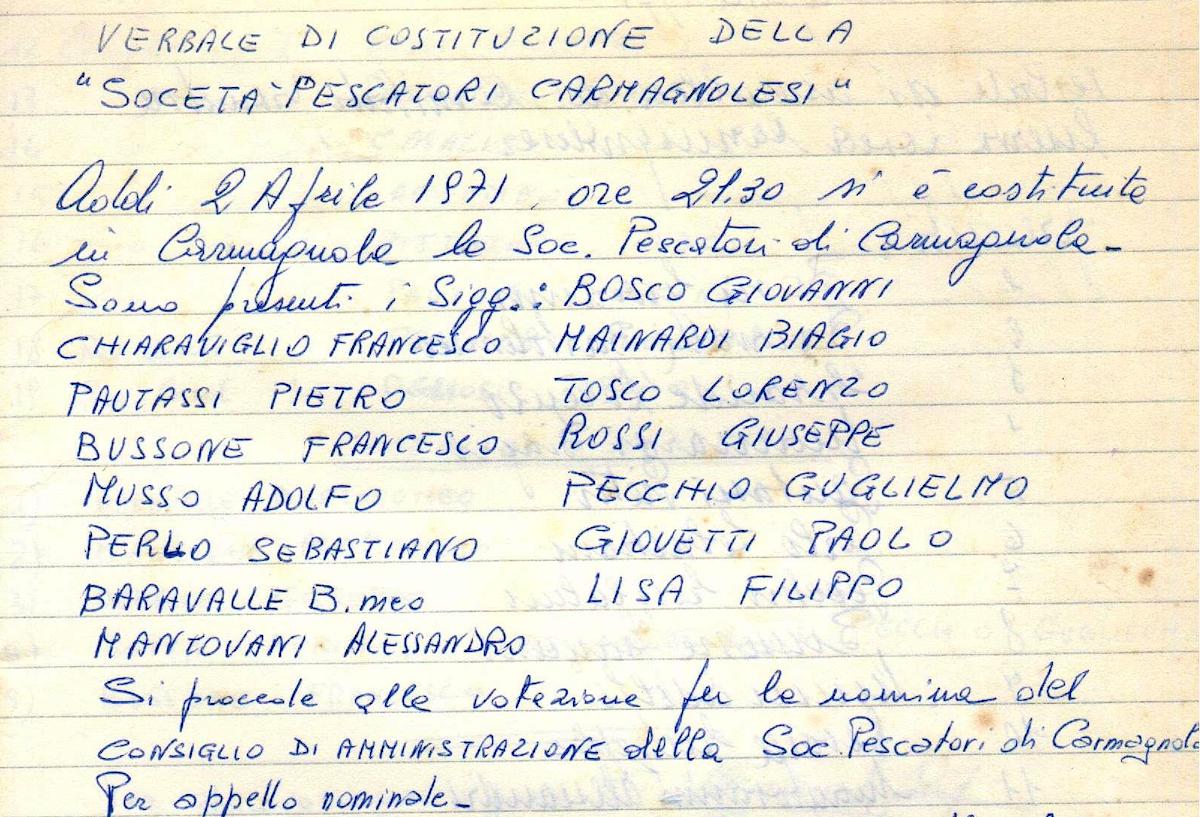 VERBALE DI COSTITUZIONE DELLA
"SOCETA' PESCATORI CARMAGNOLESI"
Addi 2 Aprile 1971, ore 21.30 si è costituita
in Carmagnola la Soc. Pescatori di Carmagnola-
Sono presenti i Sigg.: BOSCO GIOVANNI
CHIARAVIGLIO FRANCESCO MAINARDI BIAGIO
PAUTASSI PIETRO TOSCO LORENZO
BUSSONE FRANCESCO ROSSI GIUSEPPE
MUSSO ADOLFO PECCHIO GUGLIELMO
PERLO SEBASTIANO GIOVETTI PAOLO
BARAVALLE B.meo LISA FILIPPO
MANTOVANI ALESSANDRO
Si procede alla votazione per la nomina del
CONSIGLIO DI AMMINISTRAZIONE della Soc Pescatori di Carmagnola
Per appello nominale-